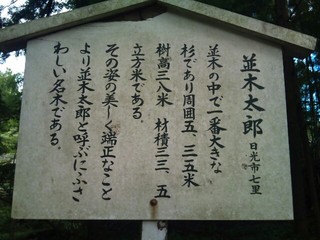 並木太郎 日光市七里
並木の中で一番大きな
杉であり周囲五、三五米
樹高三八米 材積三三、五
立方米である。
その姿の美しく端正なこと
より並木太郎と呼ぶにふさ
わしい名木である。